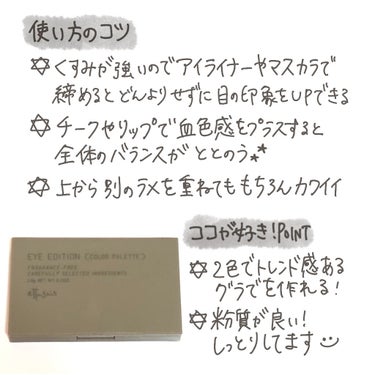 使い方のコツ
✡くすみが強いのでアイライナーやマスカラで
締めるとどんよりせずに目の印象をUPできる
✡チークやリップで血色感をプラスすると
全体のバランスがととのう**
✡上から別のラメを重ねてももちろんカワイイ
ココが好き!POINT
✡2色でトレンド感ある
グラデを作れる!
✡粉質が良い!
しっとりしてます
EYE EDITION (COLOR PALETTE)
FRAGRANCE-FREE
CAREFULLY SELECTED INGREDIENTS